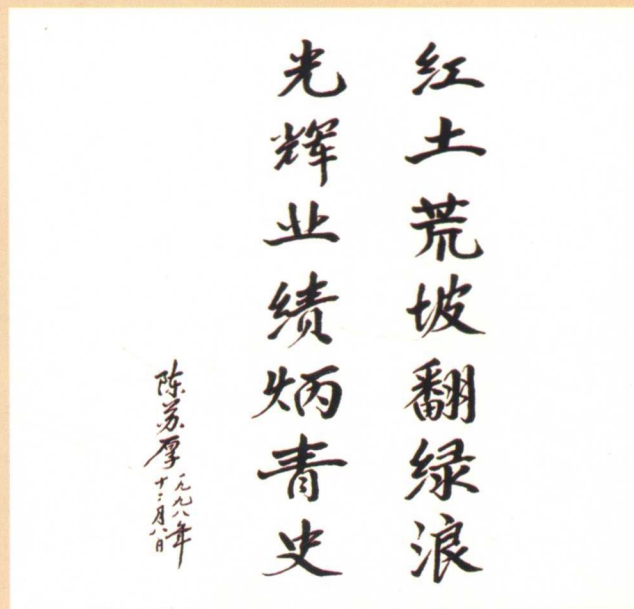 红土荒坡翻绿浪
光辉业绩炳青史
陈苏厚
一九九八年
十二月八日